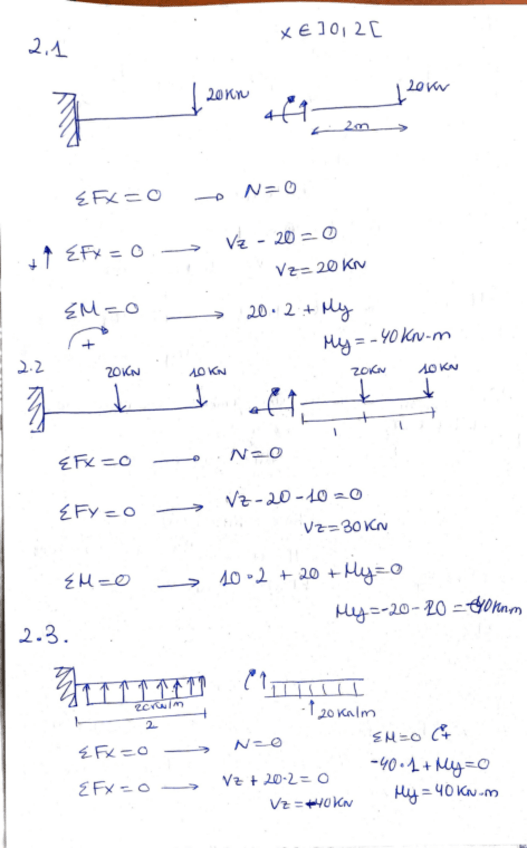 x ∈ ]0,2[
2.1
20KN
20KN
2m
ΣFx=0 → N=0
+↑ ΣFx=0 → Vz - 20=0
Vz=20KN
ΣM=0 → 20·2+My
+
My=-40KN-m
2.2
20KN 10KN
20KN 10KN
1 1
ΣFx=0 → N=0
ΣFy=0 → Vz-20-10=0
Vz=30KN
ΣM=0 → 10·2 + 20 + My=0
My=-20-20=-40Knm
2.3.
20KN/m
2
20Kn/m
ΣFx=0 → N=0
ΣM=0 +
ΣFx=0 → Vz + 20·2=0
-40·1+My=0
Vz=-40KN
My=40KN-m